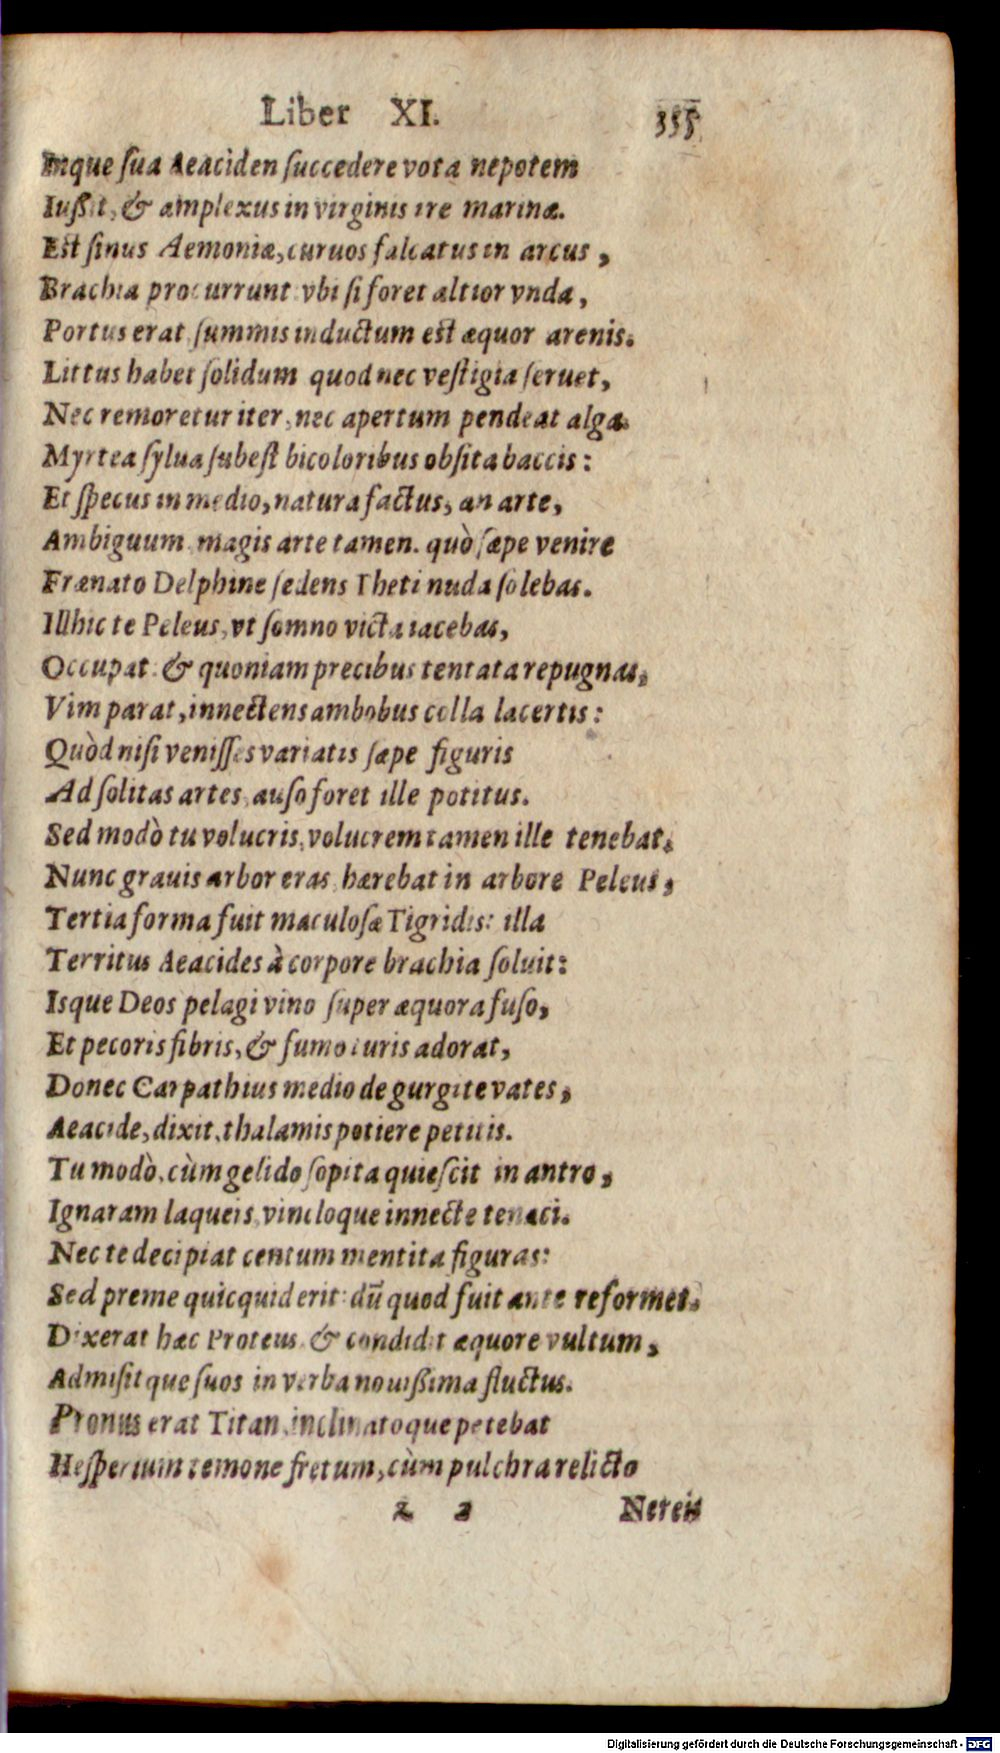 Liber XI. 355
Inque sua Aeaciden succedere vota nepotem
Iussit, & amplexus in virginis ire marinæ.
Est sinus Aemoniæ, curuos falcatus in arcus,
Brachia procurrunt: vbi si foret altior vnda,
Portus erat, summis inductum est æquor arenis.
Littus habet solidum quod nec vestigia seruet,
Nec remoretur iter, nec apertum pendeat alga.
Myrtea sylua subest bicoloribus obsita baccis:
Et specus in medio, natura factus, an arte,
Ambiguum, magis arte tamen. quò sæpe venire
Frænato Delphine sedens Theti nuda solebas.
Illhic te Peleus, vt somno victa iacebas,
Occupat: & quoniam precibus tentata repugnas,
Vim parat, innectens ambobus colla lacertis:
Quòd nisi venisses variatis sæpe figuris
Ad solitas artes, auso foret ille potitus.
Sed modò tu volucris, volucrem tamen ille tenebat,
Nunc grauis arbor eras, hærebat in arbore Peleus,
Tertia forma fuit maculosæ Tigridis: illa
Territus Aeacides à corpore brachia soluit:
Isque Deos pelagi vino super æquora fuso,
Et pecoris fibris, & fumo turis adorat,
Donec Carpathius medio de gurgite vates,
Aeacide, dixit, thalamis potiere petitis.
Tu modò, cùm gelido sopita quiescit in antro,
Ignaram laqueis, vincloque innecte tenaci.
Nec te decipiat centum mentita figuras:
Sed preme quicquid erit: dũ quod fuit ante reformet.
Dixerat hæc Proteus, & condidit æquore vultum,
Admisitque suos in verba nouissima fluctus.
Pronus erat Titan, inclinatoque petebat
Hesperium temone fretum, cùm pulchra relicto
z 2 Nereis
Digitalisierung gefördert durch die Deutsche Forschungsgemeinschaft - DFG